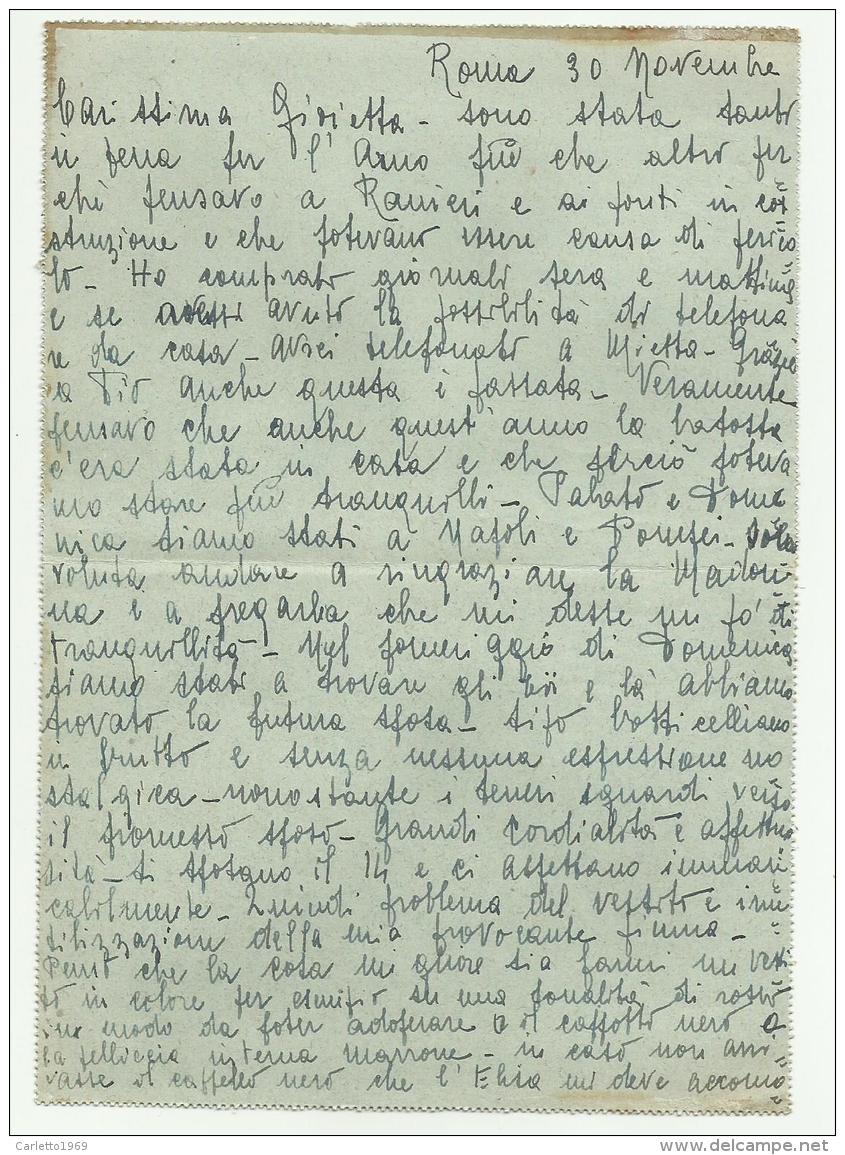 Roma 30 Novembre
Carissima Gioietta - sono stata tanto
in pena per l'Arno più che altro per
chè pensavo a Ranieri e ai ponti in co
struzione e che potevano essere causa di perico
lo - Ho comprato giornali sera e mattina
e se avessi avuto la possibilità di telefona
re da casa - avrei telefonato a Mietta - Grazie
a Dio anche questa è passata - Veramente
pensavo che anche quest'anno la batosta
c'era stata in casa e che perciò poteva
mo stare più tranquilli - Sabato e Dome
nica siamo stati a Napoli e Pompei -
voluta andare a ringraziare la Madon
na e a pregarla che mi desse un po' di
tranquillità - Nel pomeriggio di Domenica
siamo stati a trovare gli zii e là abbiamo
trovato la futura sposa - tipo botticelliano
in brutto e senza nessuna espressione no
stalgica - nonostante i teneri sguardi verso
il promesso sposo - Grandi cordialità e affettuo
sità - si sposano il 14 e ci aspettano imman
cabilmente - Quindi problema del vestito e inu
tilizzazione della mia provocante piuma -
Penso che la cosa migliore sia farmi un vesti
to in colore per esempio su una tonalità di rosso
in modo da poter adoperare o il cappotto nero o
la pelliccia interna marrone - in caso non arri
vasse il cappello nero che l'Elisa mi deve accomo
Carletto1969
www.delcampe.net